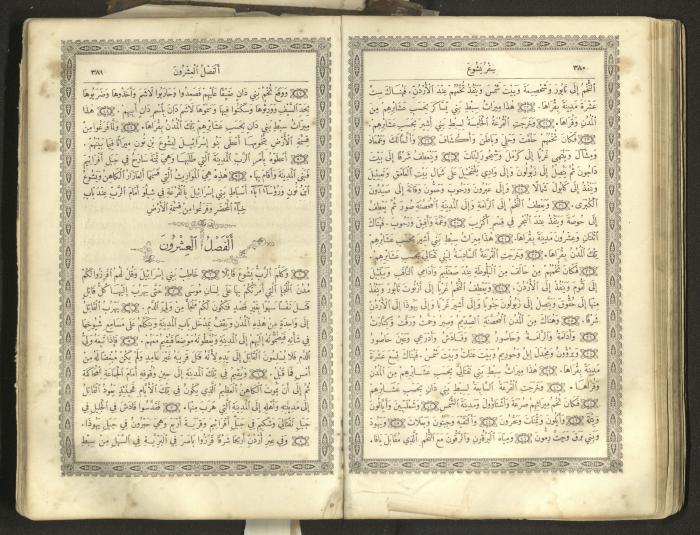 ٣٨٠
سِفْرُ يَشُوعَ
التُّخُمُ إِلَى تَابُورَ وَشَحْصِيمَةَ وَبَيْتَ شَمْسٍ وَيَنْفُذُ تُخُمُهُمْ عِنْدَ الْأُرْدُنِّ. فَهُنَاكَ سِتَّ
عَشْرَةَ مَدِينَةً بِقُرَاهَا. هٰذَا مِيرَاثُ سِبْطِ بَنِي يَسَّاكَرَ بِحَسَبِ عَشَائِرِهِمْ
الْمُدُنُ وَقُرَاهَا. وَخَرَجَتِ الْقُرْعَةُ الْخَامِسَةُ لِسِبْطِ بَنِي أَشِيرَ بِحَسَبِ عَشَائِرِهِمْ.
فَكَانَ تُخُمُهُمْ حَلْقَتَ وَحَلِيَ وَبَاطَنَ وَأَكْشَافَ وَأَلَمَّلَكَ وَعَمْعَادَ
وَمِشْآلَ وَيَنْتَهِي غَرْبًا إِلَى كَرْمَلَ وَشِيحُورَ لِبْنَاتَ وَيَنْعَطِفُ شَرْقًا إِلَى بَيْتِ
دَاجُونَ ثُمَّ يَتَّصِلُ إِلَى زَبُولُونَ وَإِلَى وَادِي يَفْتَحْئِيلَ عَلَى شِمَالِ بَيْتِ الْعَامِقِ وَنَعِيئِيلَ
وَيَنْفُذُ إِلَى كَابُولَ شِمَالًا وَإِلَى عَبْرُونَ وَرَحُوبَ وَحَمُّونَ وَقَانَةَ إِلَى صَيْدُونَ
الْكُبْرَى. وَيَعْطِفُ التُّخُمُ إِلَى الرَّامَةِ وَإِلَى الْمَدِينَةِ الْمُحَصَّنَةِ صُورَ ثُمَّ يَعْطِفُ
إِلَى حُوصَةَ وَيَنْفُذُ عِنْدَ الْبَحْرِ فِي قِسْمِ أَكْزِيبَ وَعُمَّةَ وَأَفِيقَ وَرَحُوبَ. فَهُنَاكَ
اثْنَتَانِ وَعِشْرُونَ مَدِينَةً بِقُرَاهَا. هٰذَا مِيرَاثُ سِبْطِ بَنِي أَشِيرَ بِحَسَبِ عَشَائِرِهِمْ
تِلْكَ الْمُدُنُ بِقُرَاهَا. وَخَرَجَتِ الْقُرْعَةُ السَّادِسَةُ لِبَنِي نَفْتَالِي بِحَسَبِ عَشَائِرِهِمْ
فَكَانَ تُخُمُهُمْ مِنْ حَالَفَ مِنَ الْبَلُّوطَةِ عِنْدَ صَعَنَنِّيمَ وَأَدَامِي النَّاقِبِ وَيَبْنَئِيلَ
إِلَى لَقُّومَ وَيَنْفُذُ إِلَى الْأُرْدُنِّ. وَيَعْطِفُ التُّخُمُ غَرْبًا إِلَى أَزْنُوتِ تَابُورَ وَيَنْفُذُ
مِنْهَا إِلَى حُقُّوقَ وَيَتَّصِلُ إِلَى زَبُولُونَ جَنُوبًا وَإِلَى أَشِيرَ غَرْبًا وَإِلَى يَهُوذَا إِلَى الْأُرْدُنِّ
شَرْقًا. وَهُنَاكَ مِنَ الْمُدُنِ الْمُحَصَّنَةِ الصِّدِّيمُ وَصِيرُ وَحَمَّتُ وَرَقَّتُ وَكِنَّارَتُ
وَأَدَامَةُ وَالرَّامَةُ وَحَاصُورُ وَقَادَشُ وَأَدْرَعِي وَعَيْنُ حَاصُورَ
وَيِرْؤُونُ وَمِجْدَلُ إِيلَ وَحُورِيمُ وَبَيْتُ عَنَاتَ وَبَيْتُ شَمْسٍ. فَهُنَاكَ تِسْعَ عَشْرَةَ
مَدِينَةً بِقُرَاهَا. هٰذَا مِيرَاثُ سِبْطِ بَنِي نَفْتَالِي بِحَسَبِ عَشَائِرِهِمْ مِنَ الْمُدُنِ
وَقُرَاهَا. وَخَرَجَتِ الْقُرْعَةُ السَّابِعَةُ لِسِبْطِ بَنِي دَانَ بِحَسَبِ عَشَائِرِهِمْ
فَكَانَ تُخُمُ مِيرَاثِهِمْ صُرْعَةَ وَأَشْتَاؤُولَ وَمَدِينَةَ الشَّمْسِ وَشَعَلَبِّينَ وَأَيَّالُونَ
وَيِتْلَةَ وَأَيْلُونَ وَتِمْنَاتَ وَعَقْرُونَ وَأَلْتَقِيهَ وَجِبَّتُونَ وَبَعْلَاتَ وَيَهُودَ
وَبَنِي بَرَقَ وَجَتَّ رِمُّونَ وَمِيَاهَ الْيَرْقُونِ وَالرَّقُّونَ مَعَ التُّخُمِ الَّذِي مُقَابِلَ يَافَا.
٣٨١
أَلْفَصْلُ الْعِشْرُونَ
وَوَقَعَ تُخُمُ بَنِي دَانَ ضَيِّقًا عَلَيْهِمْ فَصَعِدُوا وَحَارَبُوا لَاشَمَ وَأَخَذُوهَا وَضَرَبُوهَا
بِحَدِّ السَّيْفِ وَوَرِثُوهَا وَسَكَنُوا فِيهَا وَسَمَّوْا لَاشَمَ دَانَ بِاسْمِ دَانَ أَبِيهِمْ. هٰذَا
مِيرَاثُ سِبْطِ بَنِي دَانَ بِحَسَبِ عَشَائِرِهِمْ تِلْكَ الْمُدُنُ بِقُرَاهَا. وَلَمَّا فَرَغُوا مِنْ
قِسْمَةِ الْأَرْضِ بِتُخُومِهَا أَعْطَى بَنُو إِسْرَائِيلَ لِيَشُوعَ بْنِ نُونٍ مِيرَاثًا فِيمَا بَيْنَهُمْ.
أَعْطَوْهُ بِأَمْرِ الرَّبِّ الْمَدِينَةَ الَّتِي طَلَبَهَا وَهِيَ تِمْنَةُ سَارَحَ فِي جَبَلِ أَفْرَائِيمَ
فَبَنَى الْمَدِينَةَ وَأَقَامَ بِهَا. هٰذِهِ هِيَ الْمَوَارِيثُ الَّتِي قَسَّمَهَا أَلِعَازَارُ الْكَاهِنُ وَيَشُوعُ
ابْنُ نُونٍ وَرُؤَسَاءُ آبَاءِ أَسْبَاطِ بَنِي إِسْرَائِيلَ بِالْقُرْعَةِ فِي شِيلُو أَمَامَ الرَّبِّ عِنْدَ بَابِ
خِبَاءِ الْمَحْضَرِ وَفَرَغُوا مِنْ قِسْمَةِ الْأَرْضِ
أَلْفَصْلُ الْعِشْرُونَ
وَكَلَّمَ الرَّبُّ يَشُوعَ قَائِلًا خَاطِبْ بَنِي إِسْرَائِيلَ وَقُلْ لَهُمْ أَفْرِزُوا لَكُمْ
مُدُنَ الْمَلْجَإِ الَّتِي أَمَرْتُكُمْ بِهَا عَلَى لِسَانِ مُوسَى حَتَّى يَهْرُبَ إِلَيْهَا كُلُّ قَاتِلٍ
قَتَلَ نَفْسًا سَهْوًا بِغَيْرِ قَصْدٍ فَتَكُونُ لَكُمْ مَلْجَأً مِنْ وَلِيِّ الدَّمِ. يَهْرُبُ الْقَاتِلُ
إِلَى وَاحِدَةٍ مِنْ هٰذِهِ الْمُدُنِ وَيَقِفُ بِمَدْخَلِ بَابِ الْمَدِينَةِ وَيَتَكَلَّمُ عَلَى مَسَامِعِ شُيُوخِهَا
فِي شَأْنِهِ فَيَضُمُّونَهُ إِلَيْهِمْ فِي الْمَدِينَةِ وَيُعْطُونَهُ مَوْضِعًا فَيُقِيمُ مَعَهُمْ. فَإِذَا تَبِعَهُ وَلِيُّ
الدَّمِ فَلَا يُسَلِّمُونَ الْقَاتِلَ إِلَى يَدِهِ لِأَنَّهُ قَتَلَ قَرِيبَهُ غَيْرَ عَامِدٍ وَلَمْ يَكُنْ مُبْغِضًا لَهُ مِنْ
أَمْسِ فَمَا قَبْلُ. وَيُقِيمُ فِي تِلْكَ الْمَدِينَةِ إِلَى حِينِ وُقُوفِهِ أَمَامَ الْجَمَاعَةِ لِلْمُحَاكَمَةِ
ثُمَّ إِلَى أَنْ يَمُوتَ الْكَاهِنُ الْعَظِيمُ الَّذِي يَكُونُ فِي تِلْكَ الْأَيَّامِ فَحِينَئِذٍ يَعُودُ الْقَاتِلُ
إِلَى مَدِينَتِهِ وَأَهْلِهِ إِلَى الْمَدِينَةِ الَّتِي هَرَبَ مِنْهَا. فَقَدَّسُوا قَادَشَ فِي الْجَلِيلِ فِي
جَبَلِ نَفْتَالِي وَشَكِيمَ فِي جَبَلِ أَفْرَائِيمَ وَقَرْيَةَ أَرْبَعَ وَهِيَ حَبْرُونُ فِي جَبَلِ يَهُوذَا.
وَفِي عَبْرِ أُرْدُنِّ أَرِيحَا شَرْقًا فَرَزُوا بَاصَرَ فِي الْبَرِّيَّةِ فِي السَّهْلِ مِنْ سِبْطِ